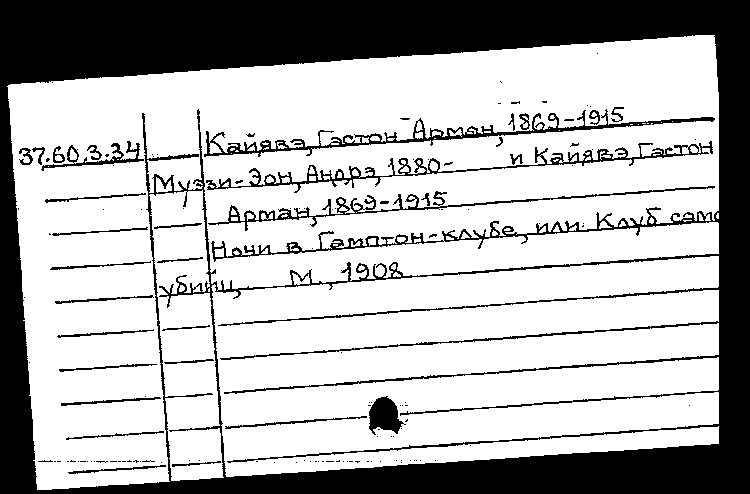 Кайявэ, Гастон Арман, 1869-1915
37.60.3.34
Муэзи-Эон, Андрэ, 1880- и Кайявэ, Гастон
Арман, 1869-1915
Ночи в Гамптон-клубе, или Клуб само
убийц, М., 1908